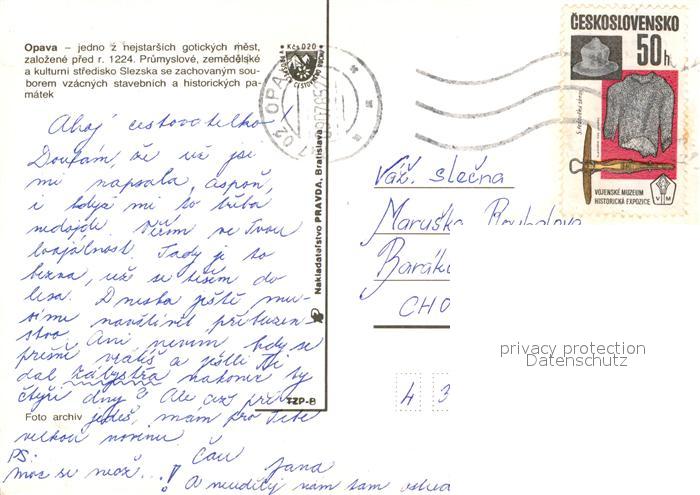 Opava – jedno z nejstarších gotických měst,
založené před r. 1224. Průmyslové, zemědělské
a kulturní středisko Slezska se zachovaným sou-
borem vzácných stavebních a historických pa-
mátek
Ahoj cestovatelko!
Doufám, že už jsi
mi napsala, aspoň,
i když mi to třeba
nedojde. Věřím ve Tvou
loajálnost. Tady je to
bezva, už se těším do
lesa. Dneska ještě mu-
síme navštívit příbuzen-
stvo. Ani nevím kdy se
přesně vrátíš a jestli Ti
dal zákystra nakonec ty
čtyři dny? Ale až při-
jedeš, mám pro Tebe
velkou novinu
Čau Jana
PS:
moc se neož...!
A neudílej nám tam
Foto archiv
Kčs 0,20
OPAVA
Nakladatelství PRAVDA, Bratislava
TZP-B
ČESKOSLOVENSKO
50 h
VOJENSKÉ MUZEUM
HISTORICKÁ EXPOZICE
V M
Váž. slečna
Maruška
Barák
CHO
4 3
privacy protection
Datenschutz